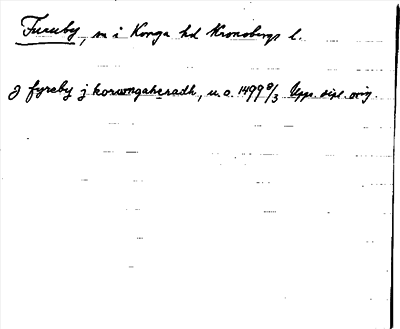 Furuby, sn i Konga hd Kronobergs l.
J fyreby j korungaheradh, u.o. 1499 8/3 Upps. dipl. orig.